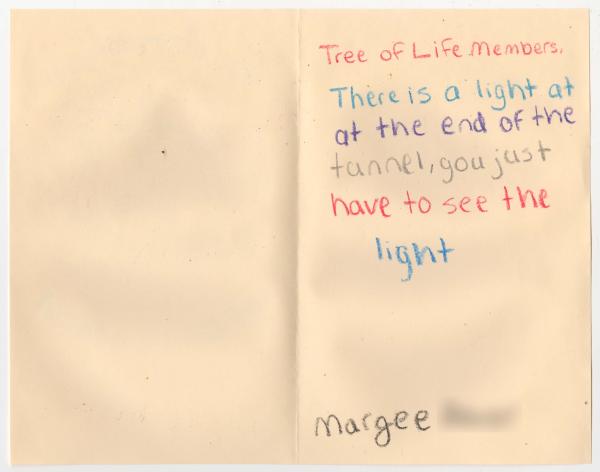 Tree of Life Members,
There is a light at
at the end of the
tunnel, you just
have to see the
light
Margee